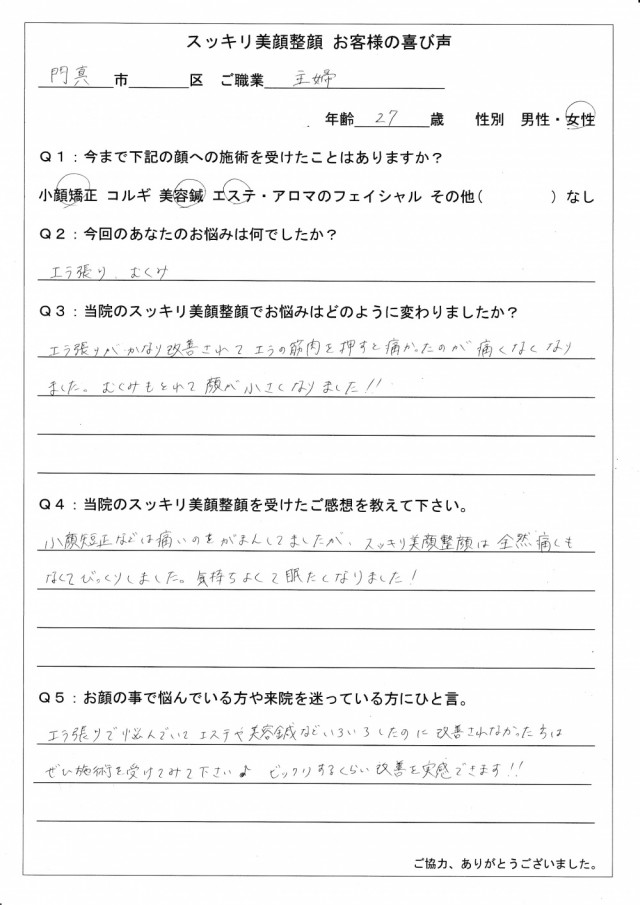 スッキリ美顔整顔 お客様の喜び声
門真 市 区 ご職業 主婦
年齢 27 歳 性別 男性・女性
Q1:今まで下記の顔への施術を受けたことはありますか?
小顔矯正 コルギ 美容鍼 エステ・アロマのフェイシャル その他( ) なし
Q2:今回のあなたのお悩みは何でしたか?
エラ張り、むくみ
Q3:当院のスッキリ美顔整顔でお悩みはどのように変わりましたか?
エラ張りがかなり改善されてエラの筋肉を押すと痛かったのが痛くなくなり
ました。むくみもとれて顔が小さくなりました!!
Q4:当院のスッキリ美顔整顔を受けたご感想を教えて下さい。
小顔矯正などは痛いのをがまんしてましたが、スッキリ美顔整顔は全然痛くも
なくてびっくりしました。気持ちよくて眠たくなりました!
Q5:お顔の事で悩んでいる方や来院を迷っている方にひと言。
エラ張りで悩んでいてエステや美容鍼などいろいろしたのに改善されなかった方は
ぜひ施術を受けてみて下さい♪ ビックリするくらい改善を実感できます!!
ご協力、ありがとうございました。